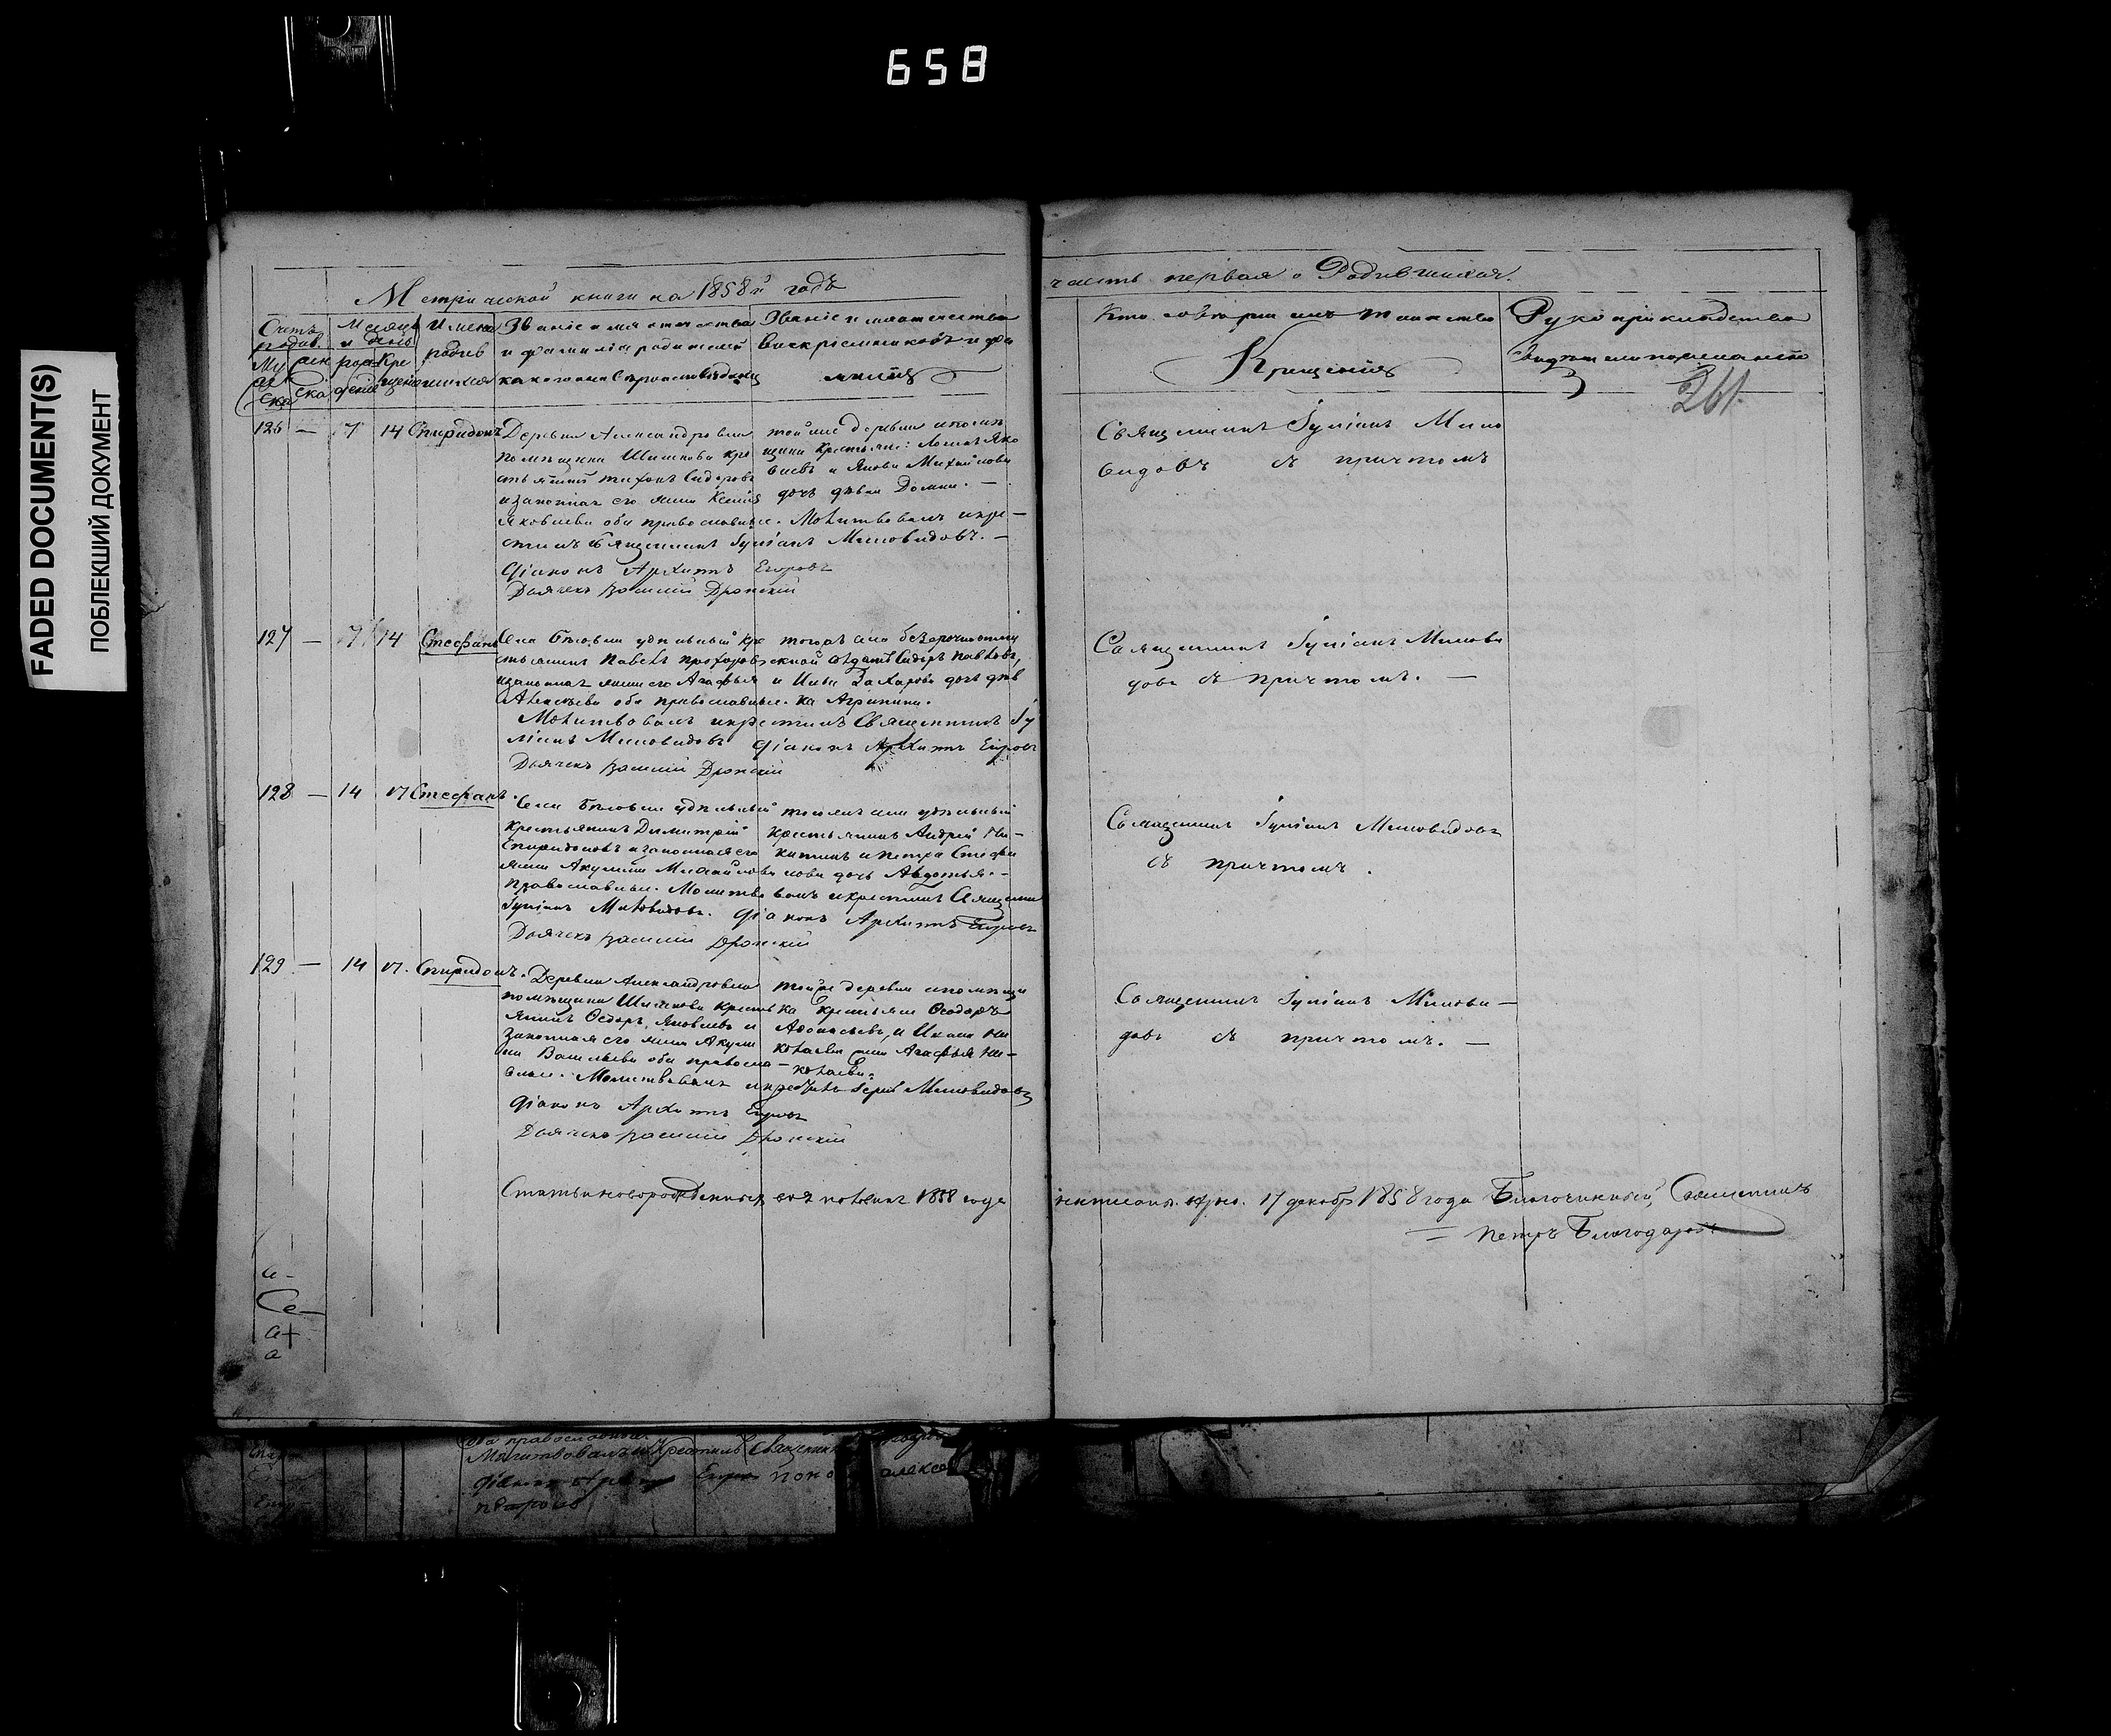 658
FADED DOCUMENT(S)
ПОБЛЕКШИЙ ДОКУМЕНТ
Метрической книги на 1858й годъ
часть первая о Родившихся.
Счетъ родив.
Муже ска
жен ска
Месяцъ и день
рождение
Крещения
Имена родившихся
Звание имя отчество
и фамилия родителей
и какого вероисповедания
Звание имя отчество
восприемниковъ и фамилия
Кто совершалъ таинство
Крещения
Рукоприкладство
свидетелей по желанию
261.
126 — 7 14 Спиридонъ
Деревни Александровки
помѣщика Шишкова кре
стьянинъ Тихонъ Сидоровъ
и законная его жена Ксенія
Яковлева оба православные. Молитвовалъ и кре—
стилъ Священникъ Іуліанъ Миловидовъ. —
Діаконъ Архипъ Егоровъ
Дьячекъ Василій Дронскій
той же деревни и помѣ
щика крестьяне: Яко
влевъ и Якова Михайлова
дочь дѣвка Домна. —
Священникъ Іуліанъ Мило
видовъ съ причтомъ
127 — 7 14 Стефанъ
Села удѣльный кре
стьянинъ Павелъ Прохоровъ
и законная жена его Агафья
Алексѣева оба православные.
того жъ села безсрочноотпу
скной солдатъ Сидоръ Павловъ,
и Ильи Захарова дочь дѣв
ка Агрипина.
Молитвовалъ и крестилъ Священникъ Іу
ліанъ Миловидовъ Діаконъ Архипъ Егоровъ
Дьячекъ Василій Дронскій
Священникъ Іуліанъ Милови
довъ съ причтомъ. —
128 — 14 17 Стефанъ.
Села удѣльный
крестьянинъ Димитрій
Спиридоновъ и законная его
жена Акулина Михайлова
православные. Молитвовалъ и крестилъ Священни
Іуліанъ Миловидовъ. Діаконъ Архипъ Егоровъ
Дьячекъ Василій Дронскій
того жъ села удѣльный
крестьянинъ Андрей Ни—
китинъ и Петра Стефа
нова дочь Авдотья. —
Священникъ Іуліанъ Миловидовъ
съ причтомъ.
129 — 14 17. Спиридонъ.
Деревни Александровки
помѣщика Шишкова кресть
янинъ Ѳедоръ Яковлевъ и
законная его жена Акули
на Васильева оба правосла—
вные. Молитвовалъ и крестилъ Іерей Миловидовъ
Діаконъ Архипъ Егоровъ
Дьячекъ Василій Дронскій
той же деревни и помѣщи
ка крестьяне Ѳеодоръ
Аѳонасьевъ, и Ни
колаева жена Агафья Ни—
колаева.
Священникъ Іуліанъ Милови—
довъ съ причтомъ. —
Статьи новорожденныхъ 1858 года
17 декабр 1858 года Благочинный, Священникъ
= Петръ Благодаровъ
оба православные
Молитвовалъ и Крестилъ Священник